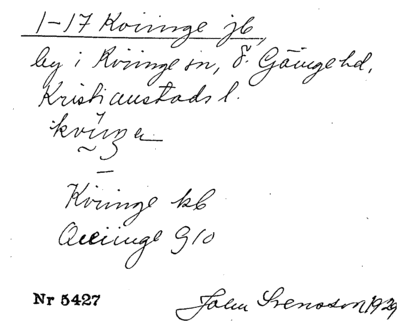 1-17 Kviinge jb,
by i Kviinge sn, Ö. Göinge hd,
Kristianstads l.
Kviinge kb
Qviinge G10
Nr 5427
John Svensson 1929